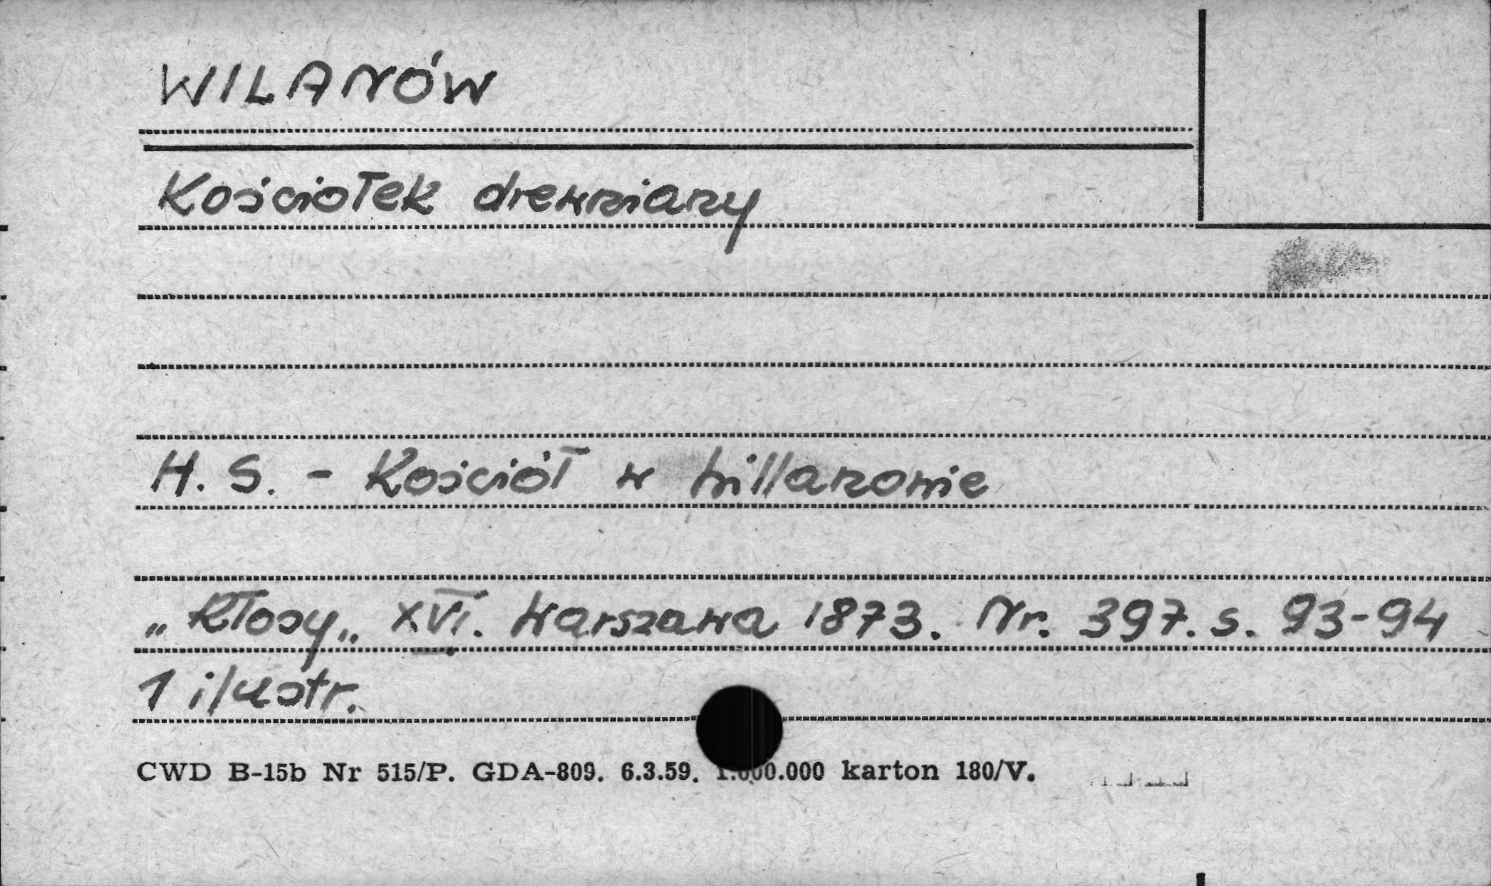 WILANÓW
Kościołek drewniany
H. S. - Kościół w Willanowie
„Kłosy„ XVI. Warszawa 1873. Nr. 397. s. 93-94
1 ilustr.
CWD B-15b Nr 515/P. GDA-809. 6.3.59. 1.000.000 karton 180/V.